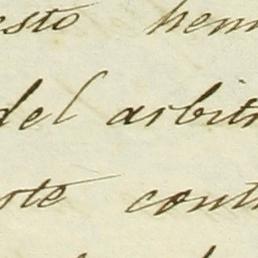 esto hem
del arbitr
rte cont